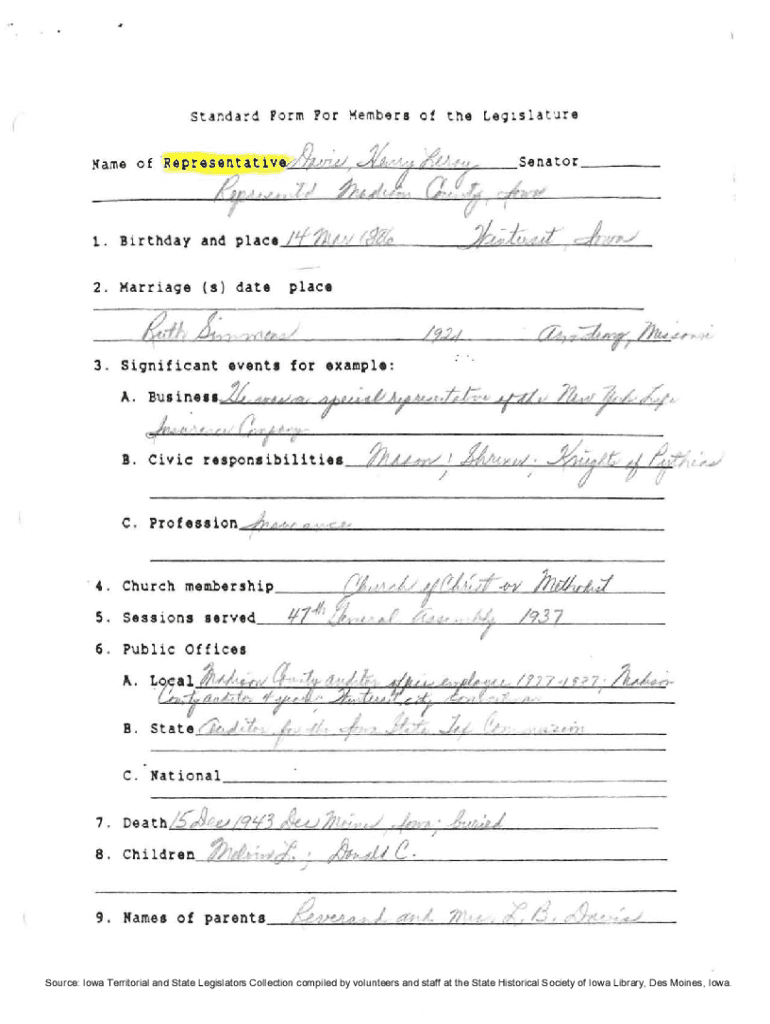 Standard Form For Members of the Legislature
Name of Representative Davis, Henry Leroy Senator
Represents Madison County, Iowa
1. Birthday and place 14 Mar Winterset, Iowa
2. Marriage (s) date place
Ruth Simmons 1921 Missouri
3. Significant events for example:
A. Business He was a special representative of the New York Life
Insurance Company
B. Civic responsibilities Mason; Shriner; Knights of Pythias
C. Profession Insurance
4. Church membership Church of Christ or Methodist
5. Sessions served 47th General Assembly 1937
6. Public Offices
A. Local Madison County auditor office employee Madison
County auditor Winterset city
B. State Auditor for the Iowa State Tax Commission
C. National
7. Death 15 Dec 1943 Des Moines, Iowa; buried
8. Children Melvin L.; Donald C.
9. Names of parents Reverand and Mrs. L. B. Davis
Source: Iowa Territorial and State Legislators Collection compiled by volunteers and staff at the State Historical Society of Iowa Library, Des Moines, Iowa.